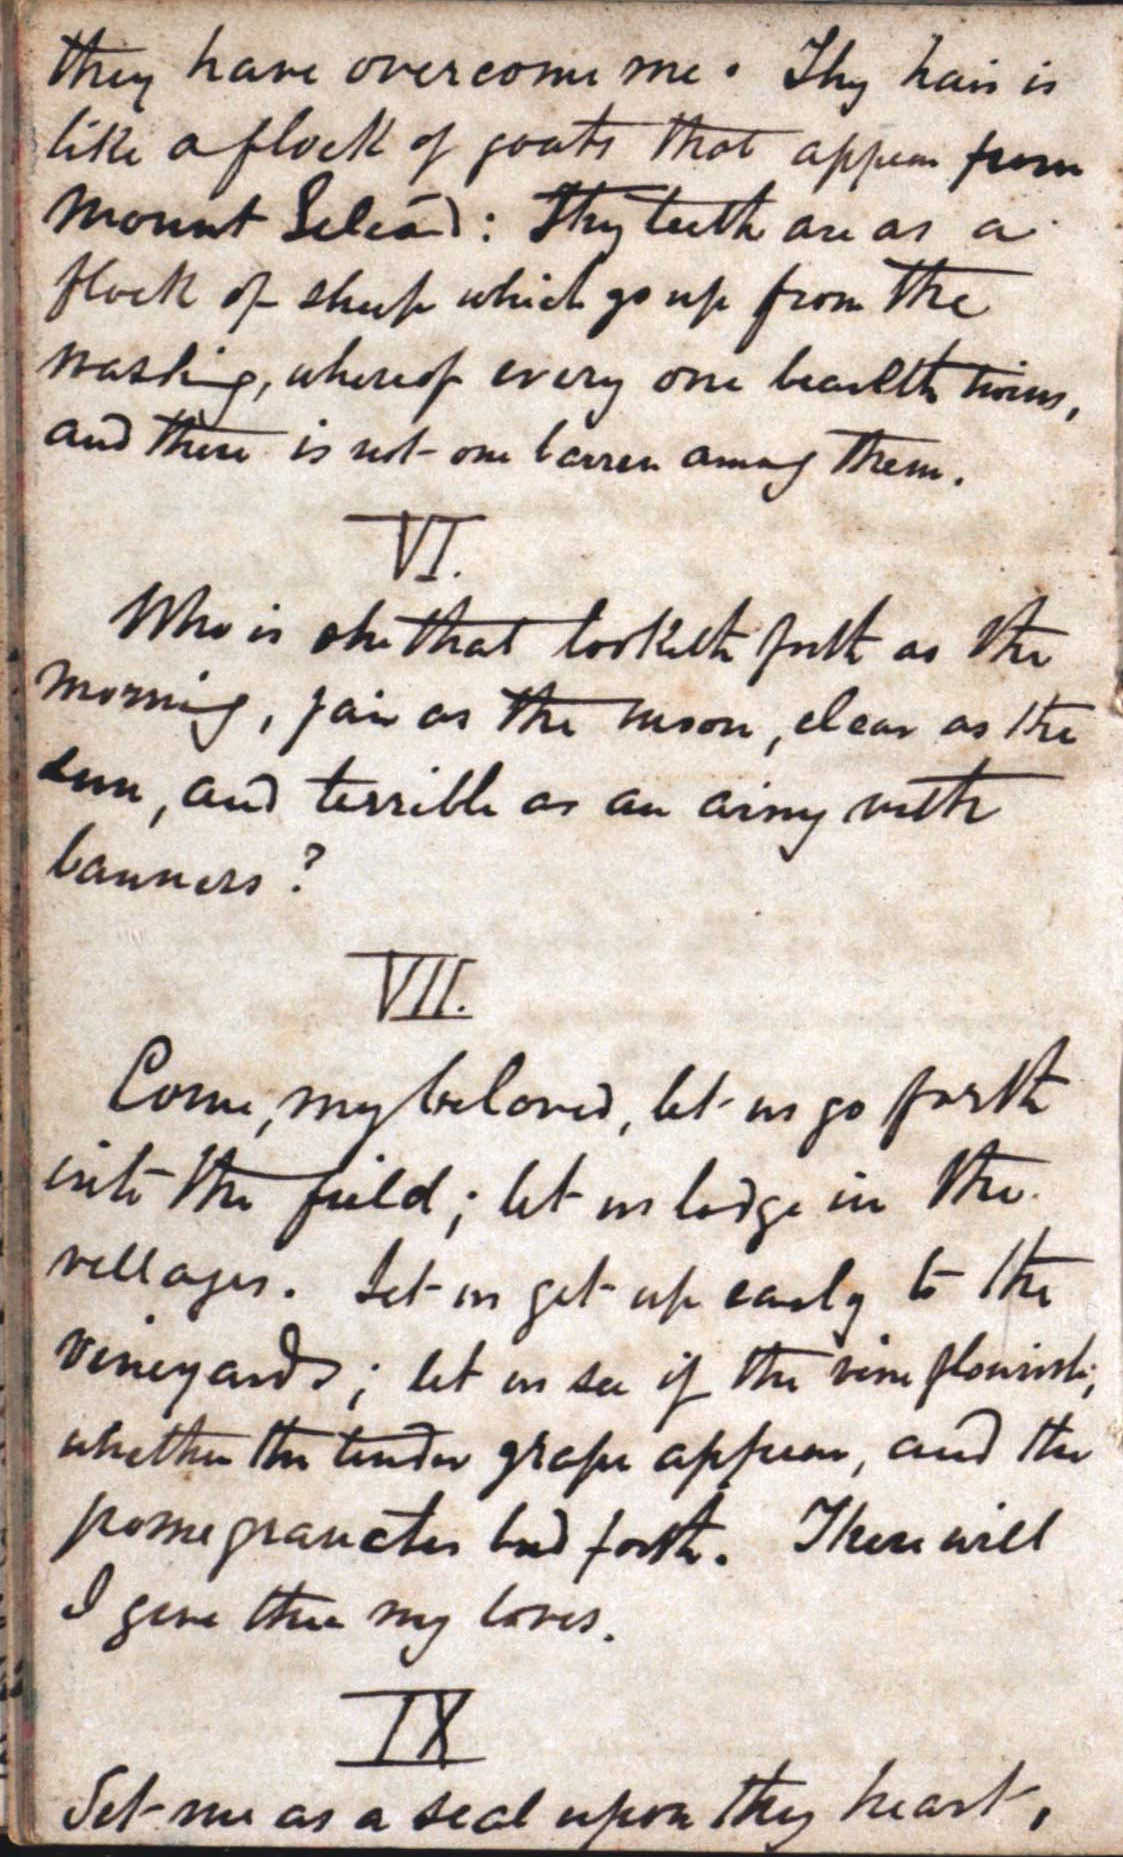 they have overcome me. Thy hair is
like a flock of goats that appear from
Mount Gilead: Thy teeth are as a
flock of sheep which go up from the
washing, whereof every one beareth twins,
and there is not one barren among them.
VI.
Who is she that looketh forth as the
morning, fair as the moon, clear as the
sun, and terrible as an army with
banners?
VII.
Come, my beloved, let us go forth
into the field; let us lodge in the
villages. Let us get up early to the
vineyards; let us see if the vine flourish,
whether the tender grape appear, and the
pomegranates bud forth. There will
I give thee my loves.
IX
Set me as a seal upon thy heart,